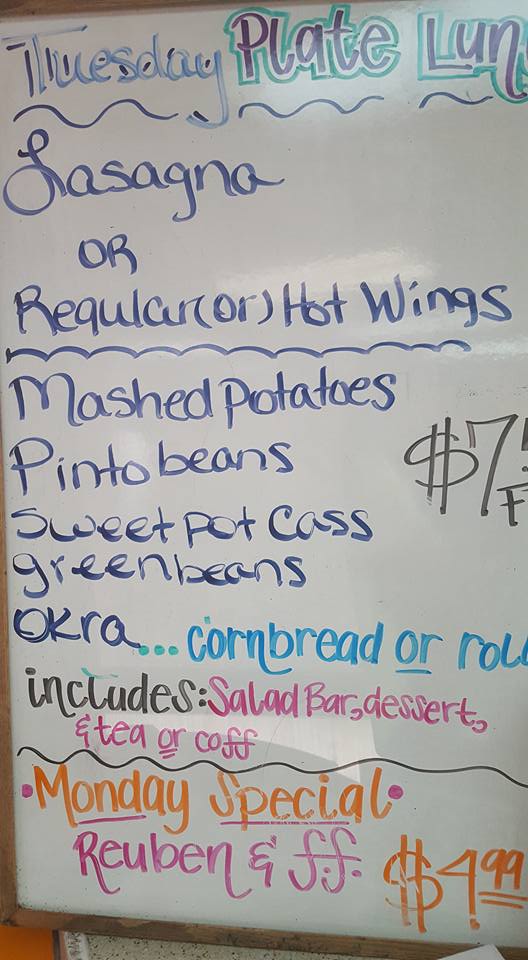 Tuesday Plate Lun
Lasagna
OR
Regular (or) Hot Wings
Mashed Potatoes
Pinto beans
$7
Sweet pot Cass
green beans
OKra... cornbread or roll
includes: Salad Bar, dessert,
& tea or coff
• Monday Special •
Reuben & f.f. $4.99